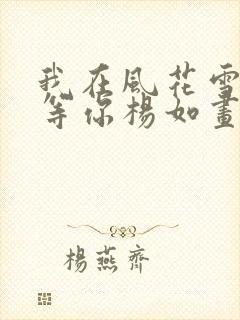 我在風花雪
等你楊如畫
楊燕齊